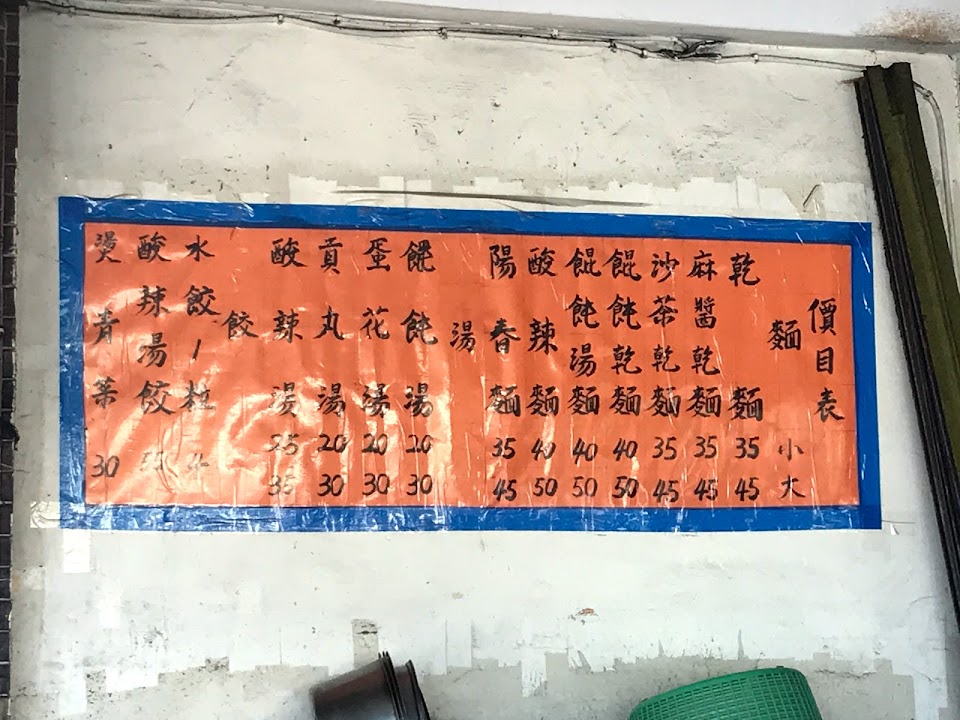 價目表
麵 小 大
乾麵 35 45
麻醬乾麵 35 45
沙茶乾麵 35 45
餛飩乾麵 40 50
餛飩湯麵 40 50
酸辣麵 40 50
陽春麵 35 45
湯
餛飩湯 20 30
蛋花湯 20 30
貢丸湯 20 30
酸辣湯 25 35
餃
水餃1粒 4
酸辣湯餃
燙青菜 30